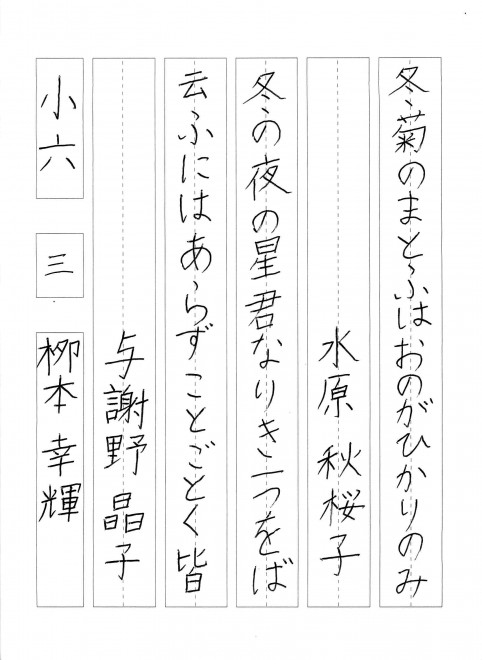 冬菊のまとふはおのがひかりのみ
水原 秋桜子
冬の夜の星君なりき一つをば
云ふにはあらずことごとく皆
与謝野 晶子
小六 三 柳本 幸輝